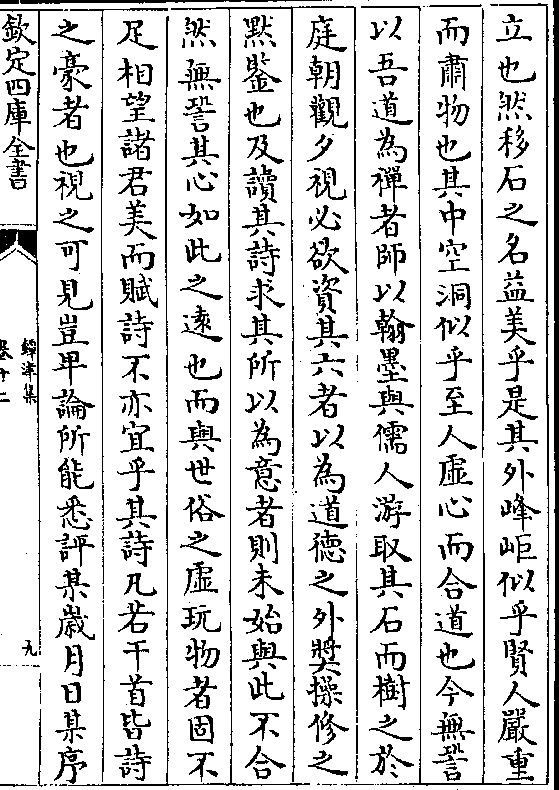 立也然移石之名益美乎是其外峰岠似乎賢人嚴重
而肅物也其中空洞似乎至人虛心而合道也今無詧
以吾道為禪者師以翰墨與儒人游取其石而樹之於
庭朝觀夕視必欲資其六者以為道德之外奬操修之
黙鍳也及讀其詩求其所以為意者則未始與此不合
然無詧其心如此之逺也而與世俗之虛玩物者固不
足相望諸君美而賦詩不亦宜乎其詩凡若干首皆詩
之豪者也視之可見豈卑論所能悉評某嵗月日某序
欽定四庫全書
鐔津集
卷十二
九